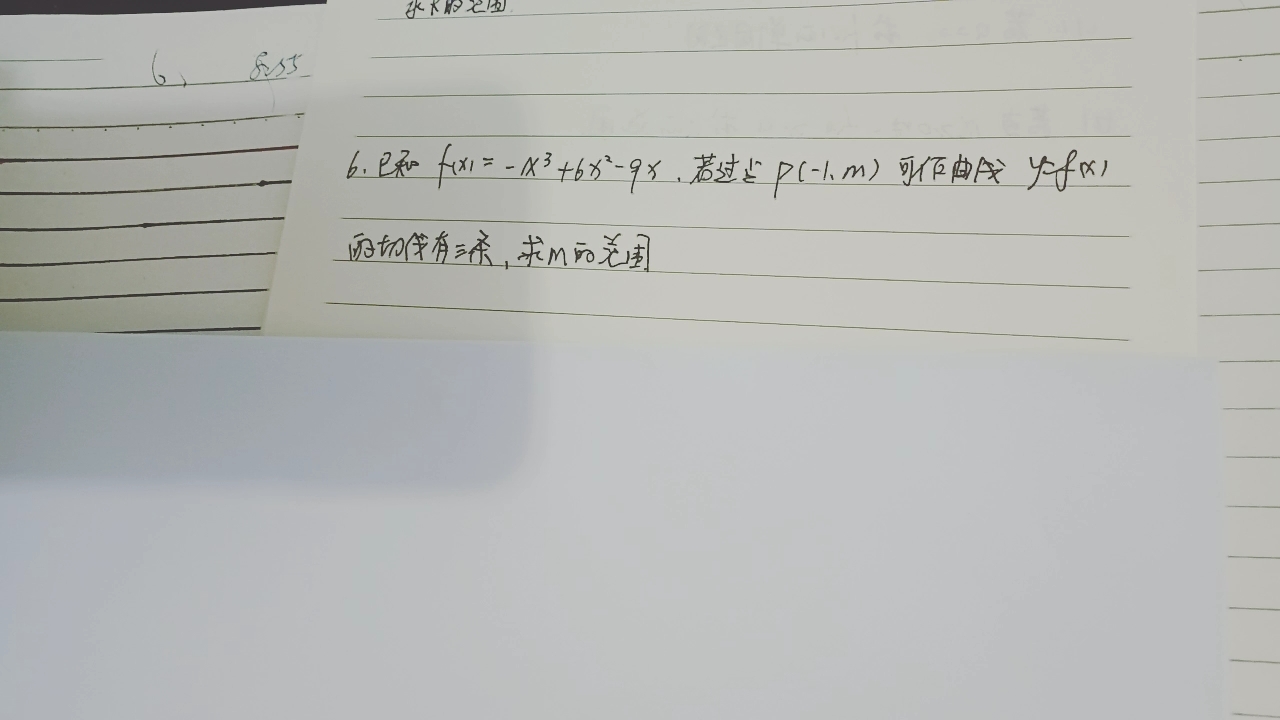 求k的范围
6、 8:55
6.已知 f(x)=-x³+6x²-9x.若过点P(-1,m)可作曲线 y=f(x)
的切线有三条,求m的范围